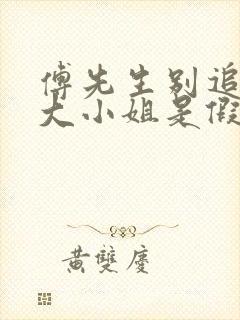 傅先生别追
大小姐是假
黄雙慶